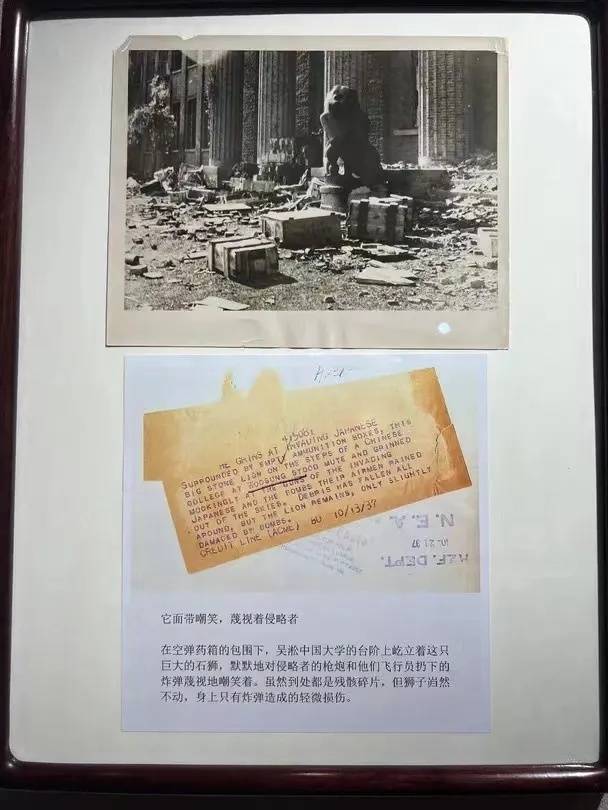 413081
HE GRINS AT INVADING JAPANESE
SURROUNDED BY EMPTY AMMUNITION BOXES, THIS
BIG STONE LION ON THE STEPS OF A CHINESE
COLLEGE AT WOOSUNG STOOD MUTE AND GRINNED
MOCKINGLY AT THE GUNS OF THE INVADING
JAPANESE AND THE BOMBS THEIR AIRMEN RAINED
OUT OF THE SKIES. DEBRIS HAS FALLEN ALL
AROUND, BUT THE LION REMAINS, ONLY SLIGHTLY
DAMAGED BY BOMBS.
CREDIT LINE (ACME) BU 10/13/37
N.E.A.
10.21.37
REF. DEPT.
它面带嘲笑，蔑视着侵略者
在空弹药箱的包围下，吴淞中国大学的台阶上屹立着这只
巨大的石狮，默默地对侵略者的枪炮和他们飞行员扔下的
炸弹蔑视地嘲笑着。虽然到处都是残骸碎片，但狮子岿然
不动，身上只有炸弹造成的轻微损伤。